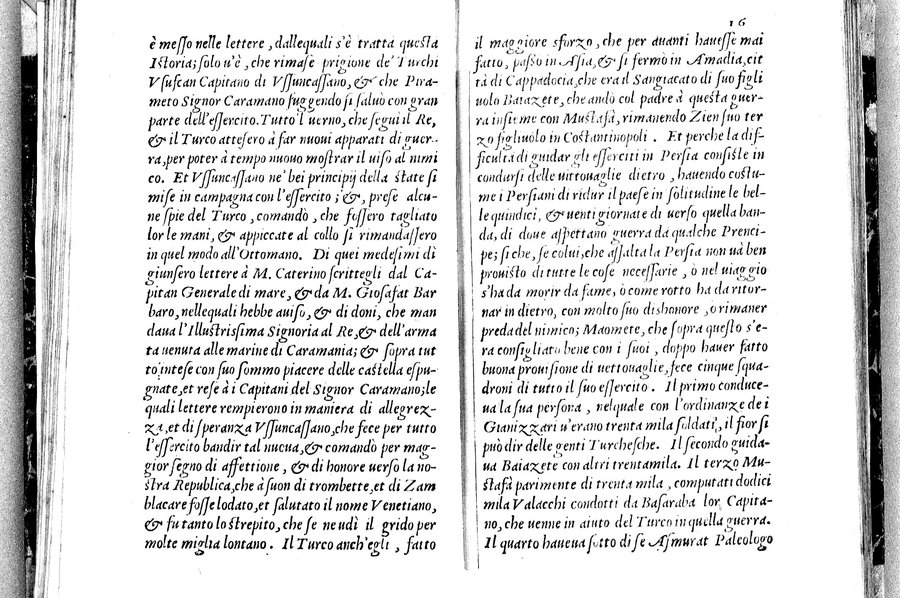 è messo nelle lettere, dallequali s'è tratta questa
Istoria; solo u'è, che rimase prigione de' Turchi
Vsufcan Capitano di Vssuncassano, & che Pira-
meto Signor Caramano fuggendo si saluò con gran
parte dell'essercito. Tutto'l uerno, che seguì il Re,
& il Turco attesero à far nuoui apparati di guer-
ra, per poter à tempo nuouo mostrar il uiso al nimi
co. Et Vssuncassano ne' bei principij della state si
mise in campagna con l'essercito; &, prese alcu-
ne spie del Turco, comandò, che fossero tagliato
lor le mani, & appiccate al collo si rimandassero
in quel modo all'Ottomano. Di quei medesimi dì
giunsero lettere à M. Caterino scrittegli dal Ca-
pitan Generale di mare, & da M. Giosafat Bar
baro, nellequali hebbe auiso, & di doni, che man
daua l'Illustrissima Signoria al Re, & dell'arma
ta uenuta alle marine di Caramania; & sopra tut
to intese con suo sommo piacere delle castella espu-
gnate, et rese à i Capitani del Signor Caramano; le
quali lettere rempierono in maniera di allegrez-
za, et di speranza Vssuncassano, che fece per tutto
l'essercito bandir tal nuoua, & comandò per mag-
gior segno di affettione, & di honore uerso la no-
stra Republica, che à suon di trombette, et di Zam
blacare fosse lodato, et salutato il nome Venetiano,
& fu tanto lo strepito, che se ne udì il grido per
molte miglia lontano. Il Turco anch'egli, fatto
16
il maggiore sforzo, che per auanti hauesse mai
fatto, passò in Asia, & si fermò in Amadia, cit
tà di Cappadocia, che era il Sangiacato di suo figli
uolo Baiazete, che andò col padre à questa guer-
ra insieme con Mustafà, rimanendo Zien suo ter
zo figliuolo in Costantinopoli. Et perche la dif-
ficultà di guidar gli esserciti in Persia consiste in
condursi delle uittouaglie dietro, hauendo costu-
me i Persiani di ridur il paese in solitudine le bel-
le quindici, & uenti giornate di uerso quella ban-
da, di doue aspettano guerra da qualche Prenci-
pe; sì che, se colui, che assalta la Persia non uà ben
prouisto di tutte le cose necessarie, ò nel uiaggio
s'ha da morir da fame, ò come rotto ha da ritor-
nar in dietro, con molto suo dishonore, o rimaner
preda del nimico; Maomete, che sopra questo s'e-
ra consigliato bene con i suoi, doppo hauer fatto
buona prouisione di uettouaglie, fece cinque squa-
droni di tutto il suo essercito. Il primo conduce-
ua la sua persona, nelquale con l'ordinanze de i
Gianizzari u'erano trenta mila soldati, il fior si
può dir delle genti Turchesche. Il secondo guida-
ua Baiazete con altri trentamila. Il terzo Mu-
stafà parimente di trenta mila, computati dodici
mila Valacchi condotti da Basaraba lor Capita-
no, che uenne in aiuto del Turco in quella guerra.
Il quarto haueua sotto di se Asmurat Paleologo